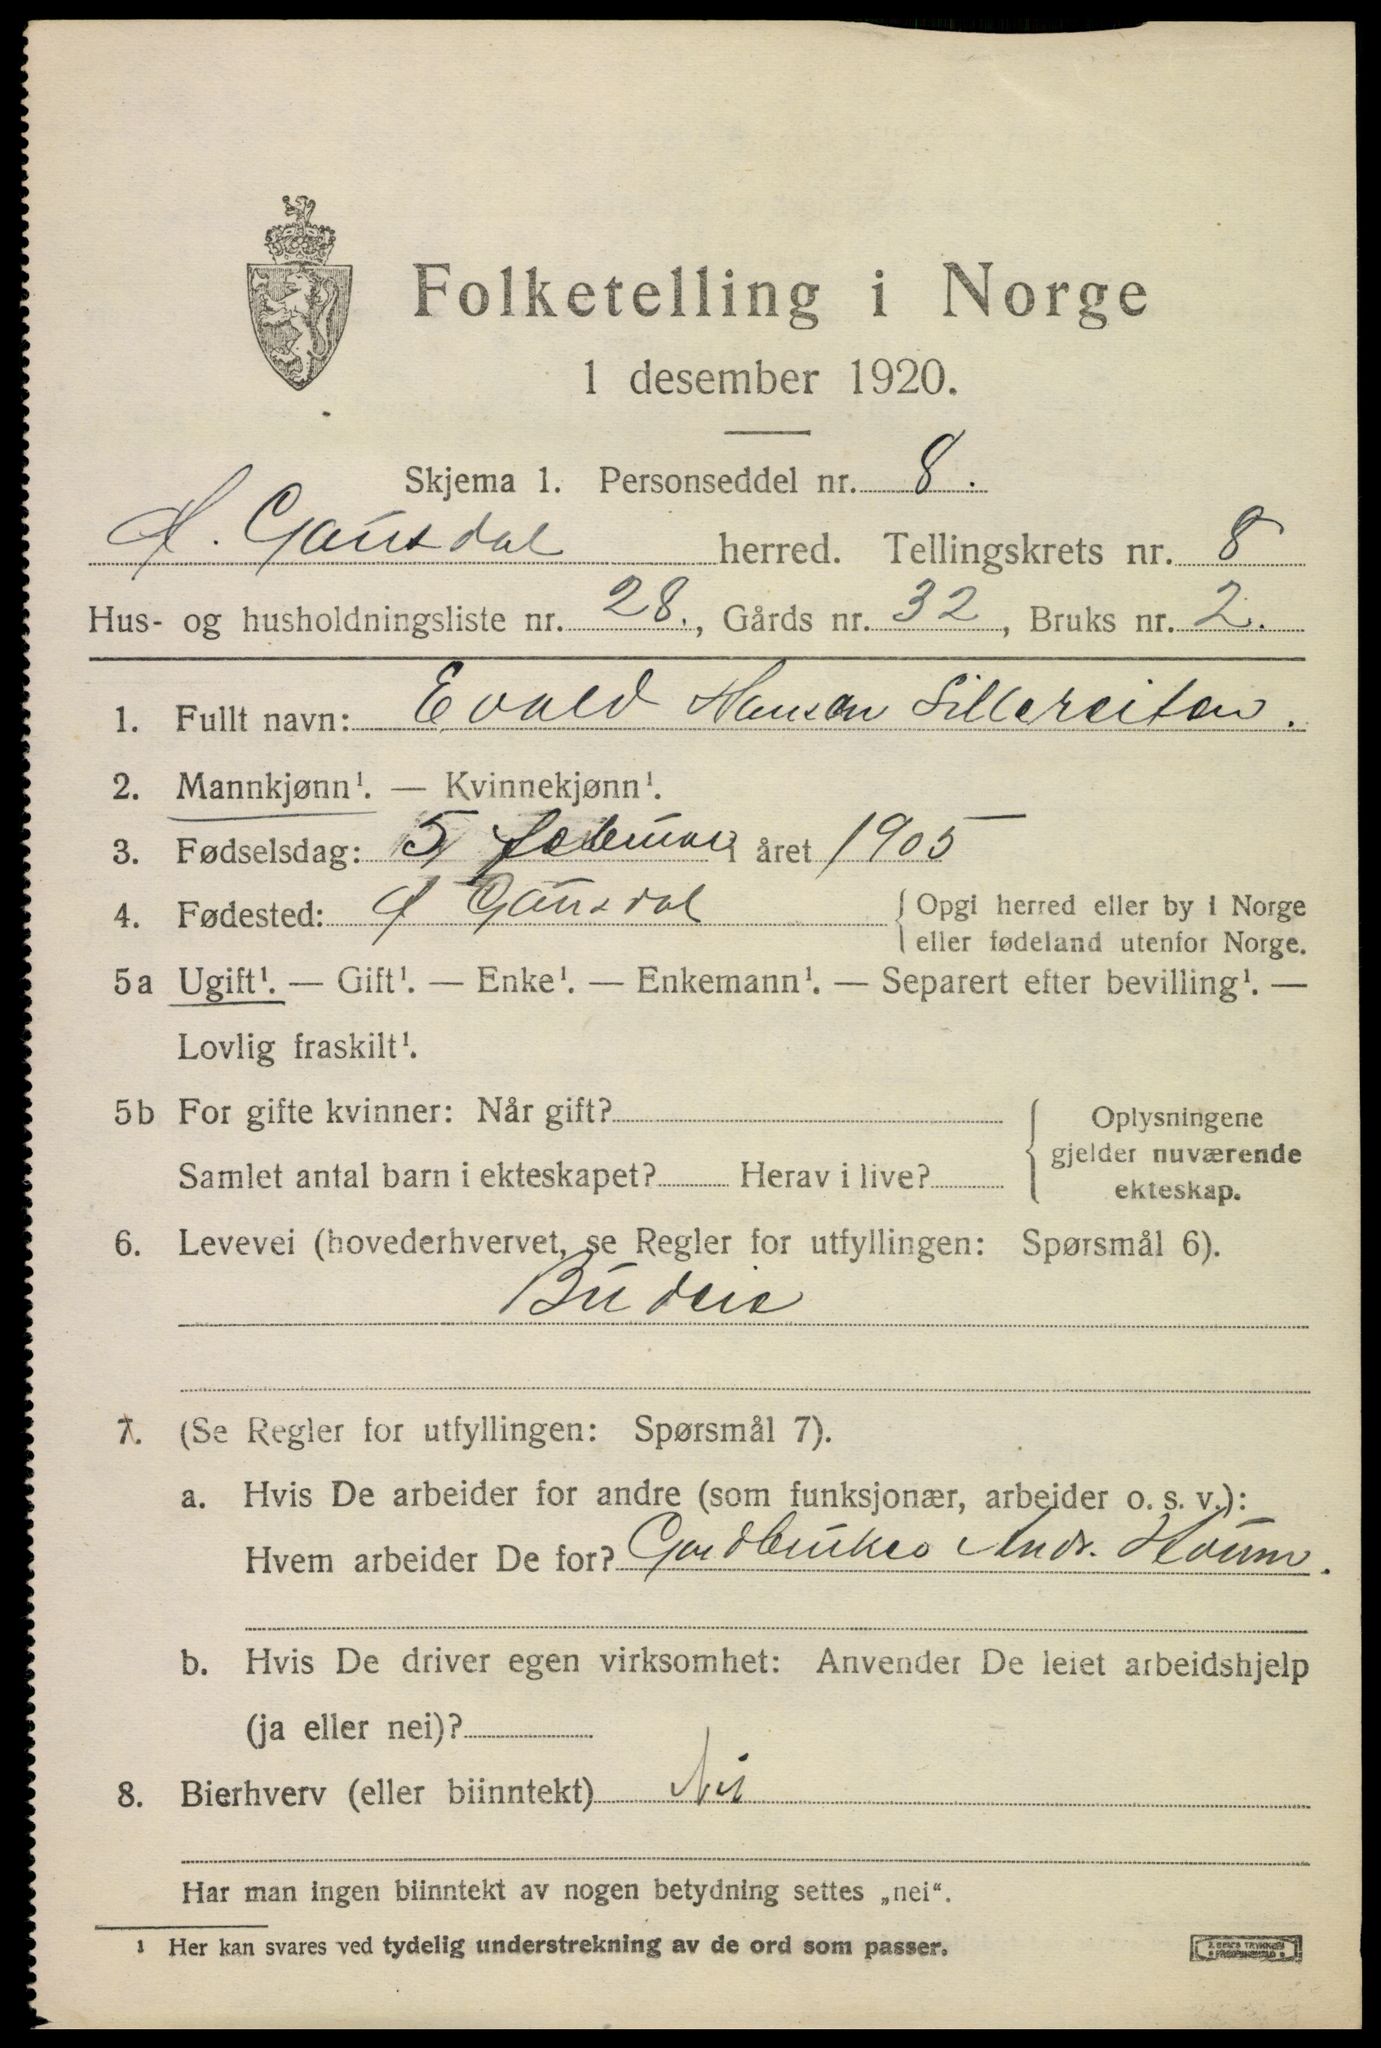 Folketelling i Norge
1 desember 1920.
Skjema 1. Personseddel nr. 8.
Ø. Gausdal herred. Tellingskrets nr. 8
Hus- og husholdningsliste nr. 28., Gårds nr. 32, Bruks nr. 2.
1. Fullt navn: Evald Hansen Sillereiten.
2. Mannkjønn¹. — Kvinnekjønn¹.
3. Fødselsdag: 5 februar i året 1905
4. Fødested: Ø Gausdal { Opgi herred eller by i Norge
eller fødeland utenfor Norge.
5a Ugift¹. — Gift¹. — Enke¹. — Enkemann¹. — Separert efter bevilling¹. —
Lovlig fraskilt¹.
5b For gifte kvinner: Når gift? { Oplysningene
gjelder nuværende
Samlet antal barn i ekteskapet? Herav i live?
ekteskap.
6. Levevei (hovederhvervet, se Regler for utfyllingen: Spørsmål 6).
Budeie
7. (Se Regler for utfyllingen: Spørsmål 7).
a. Hvis De arbeider for andre (som funksjonær, arbeider o. s. v.):
Hvem arbeider De for? Gardbruker Andr.
b. Hvis De driver egen virksomhet: Anvender De leiet arbeidshjelp
(ja eller nei)?
8. Bierhverv (eller biinntekt) Nei
Har man ingen biinntekt av nogen betydning settes „nei“.
¹ Her kan svares ved tydelig understrekning av de ord som passer.